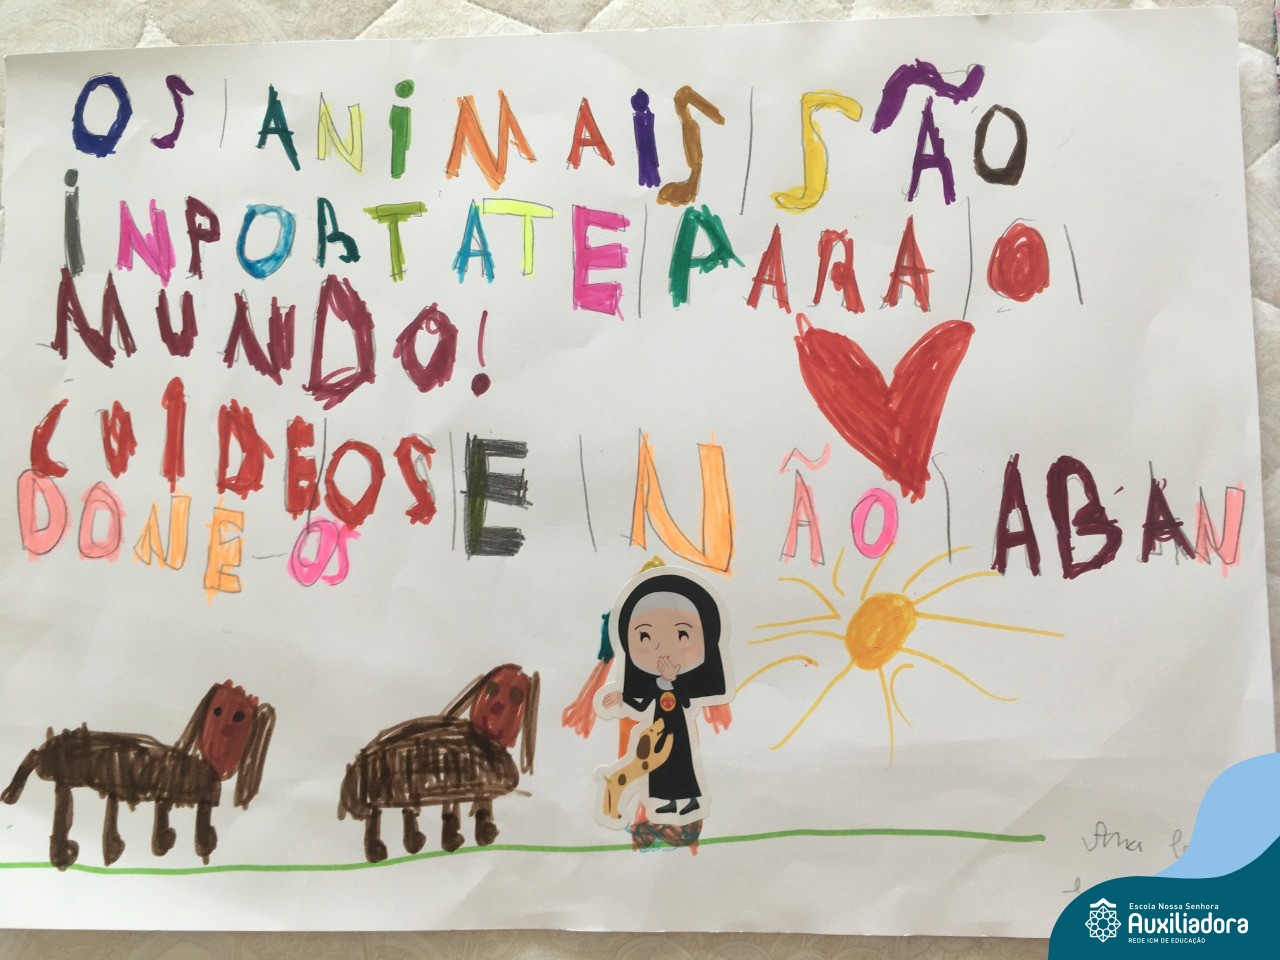 OS ANiMAiS SÃO
iNPORTATE PARA O
MUNDO!
CUIDEOS E NÃO ABAN
DONE-OS
Ana
Escola Nossa Senhora
Auxiliadora
REDE ICM DE EDUCAÇÃO